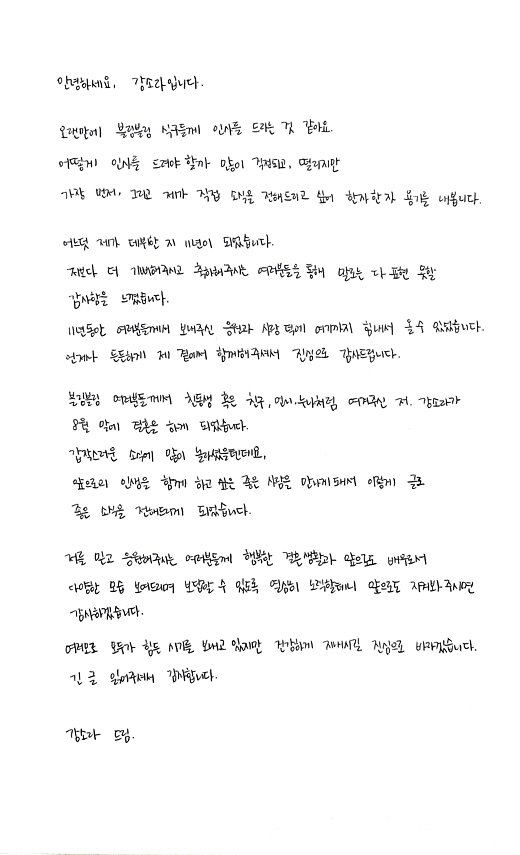 안녕하세요, 강소라입니다.
오랜만에 블링블링 식구들께 인사를 드리는 것 같아요.
어떻게 인사를 드려야 할까 많이 걱정되고, 떨리지만
가장 먼저, 그리고 제가 직접 소식을 전해드리고 싶어 한자한자 용기를 내봅니다.
어느덧 제가 데뷔한 지 11년이 되었습니다.
저보다 더 기뻐해주시고 축하해주시는 여러분들을 통해 말로는 다 표현 못할
감사함을 느꼈습니다.
11년동안 여러분들께서 보내주신 응원과 사랑 덕에 여기까지 힘내서 올 수 있었습니다.
언제나 든든하게 제 곁에서 함께해주셔서 진심으로 감사드립니다.
블링블링 여러분들께서 친동생 혹은 친구, 언니·누나처럼 여겨주신 저. 강소라가
8월 말에 결혼을 하게 되었습니다.
갑작스러운 소식에 많이 놀라셨을텐데요,
앞으로의 인생을 함께 하고 싶은 좋은 사람을 만나게 돼서 이렇게 글로
좋은 소식을 전해드리게 되었습니다.
저를 믿고 응원해주시는 여러분들께 행복한 결혼생활과 앞으로도 배우로서
다양한 모습 보여드리며 보답할 수 있도록 열심히 노력할테니 앞으로도 지켜봐 주시면
감사하겠습니다.
여러모로 모두가 힘든 시기를 보내고 있지만 건강하게 지내시길 진심으로 바라겠습니다.
긴 글 읽어주셔서 감사합니다.
강소라 드림.